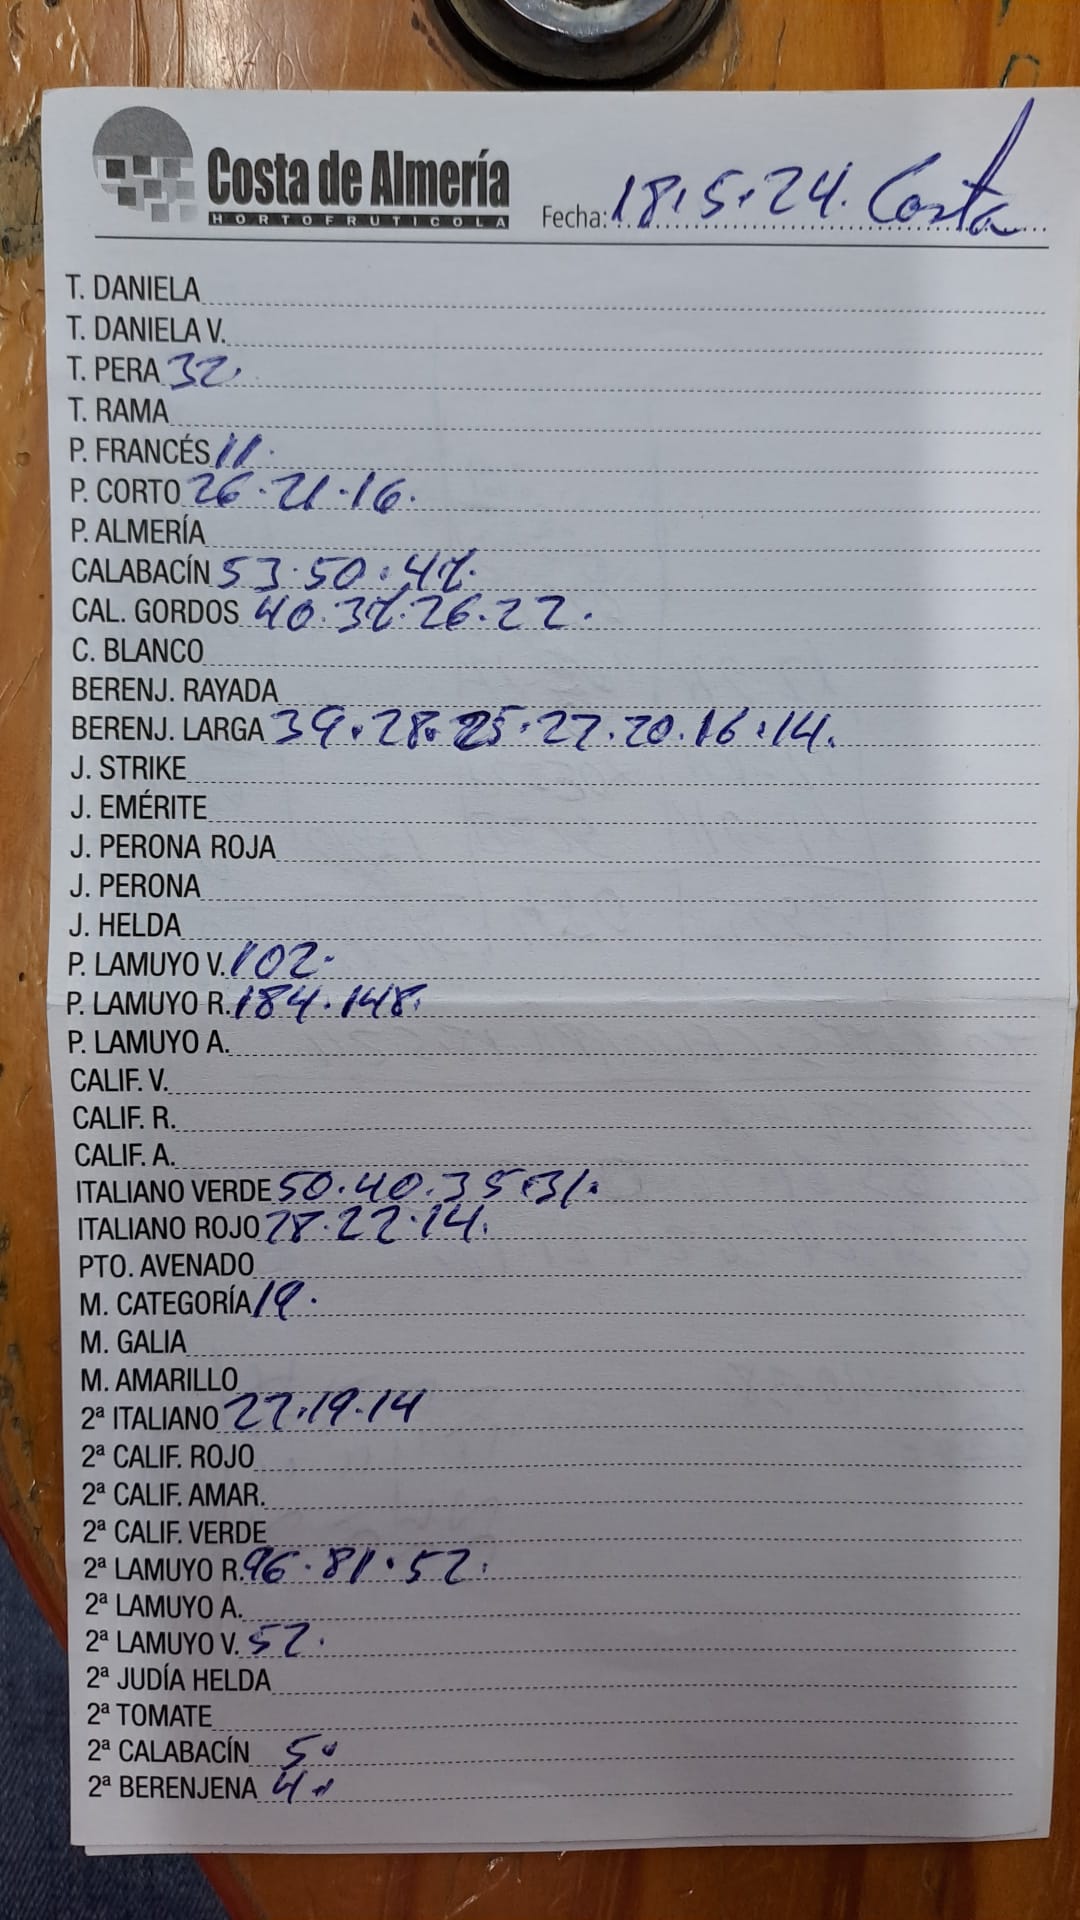 Costa de Almería
HORTOFRUTICOLA
Fecha: 18.5.24. Costa
T. DANIELA
T. DANIELA V.
T. PERA 32.
T. RAMA
P. FRANCÉS 11.
P. CORTO 26.21.16.
P. ALMERÍA
CALABACÍN 53.50.47.
CAL. GORDOS 40.37.26.22.
C. BLANCO
BERENJ. RAYADA
BERENJ. LARGA 39.28.25.22.20.16.14.
J. STRIKE
J. EMÉRITE
J. PERONA ROJA
J. PERONA
J. HELDA
P. LAMUYO V. 102.
P. LAMUYO R. 184.148.
P. LAMUYO A.
CALIF. V.
CALIF. R.
CALIF. A.
ITALIANO VERDE 50.40.35.31.
ITALIANO ROJO 28.22.14.
PTO. AVENADO
M. CATEGORÍA 19.
M. GALIA
M. AMARILLO
2ª ITALIANO 22.19.14
2ª CALIF. ROJO
2ª CALIF. AMAR.
2ª CALIF. VERDE
2ª LAMUYO R. 96.81.52.
2ª LAMUYO A.
2ª LAMUYO V. 52.
2ª JUDÍA HELDA
2ª TOMATE
2ª CALABACÍN 5.
2ª BERENJENA 4.